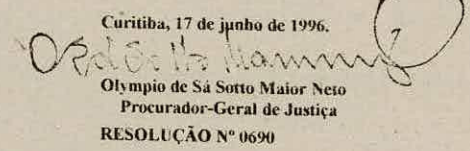 Curitiba, 17 de junho de 1996.
Olympio de Sá Sotto Maior Neto
Procurador-Geral de Justiça
RESOLUÇÃO Nº 0690